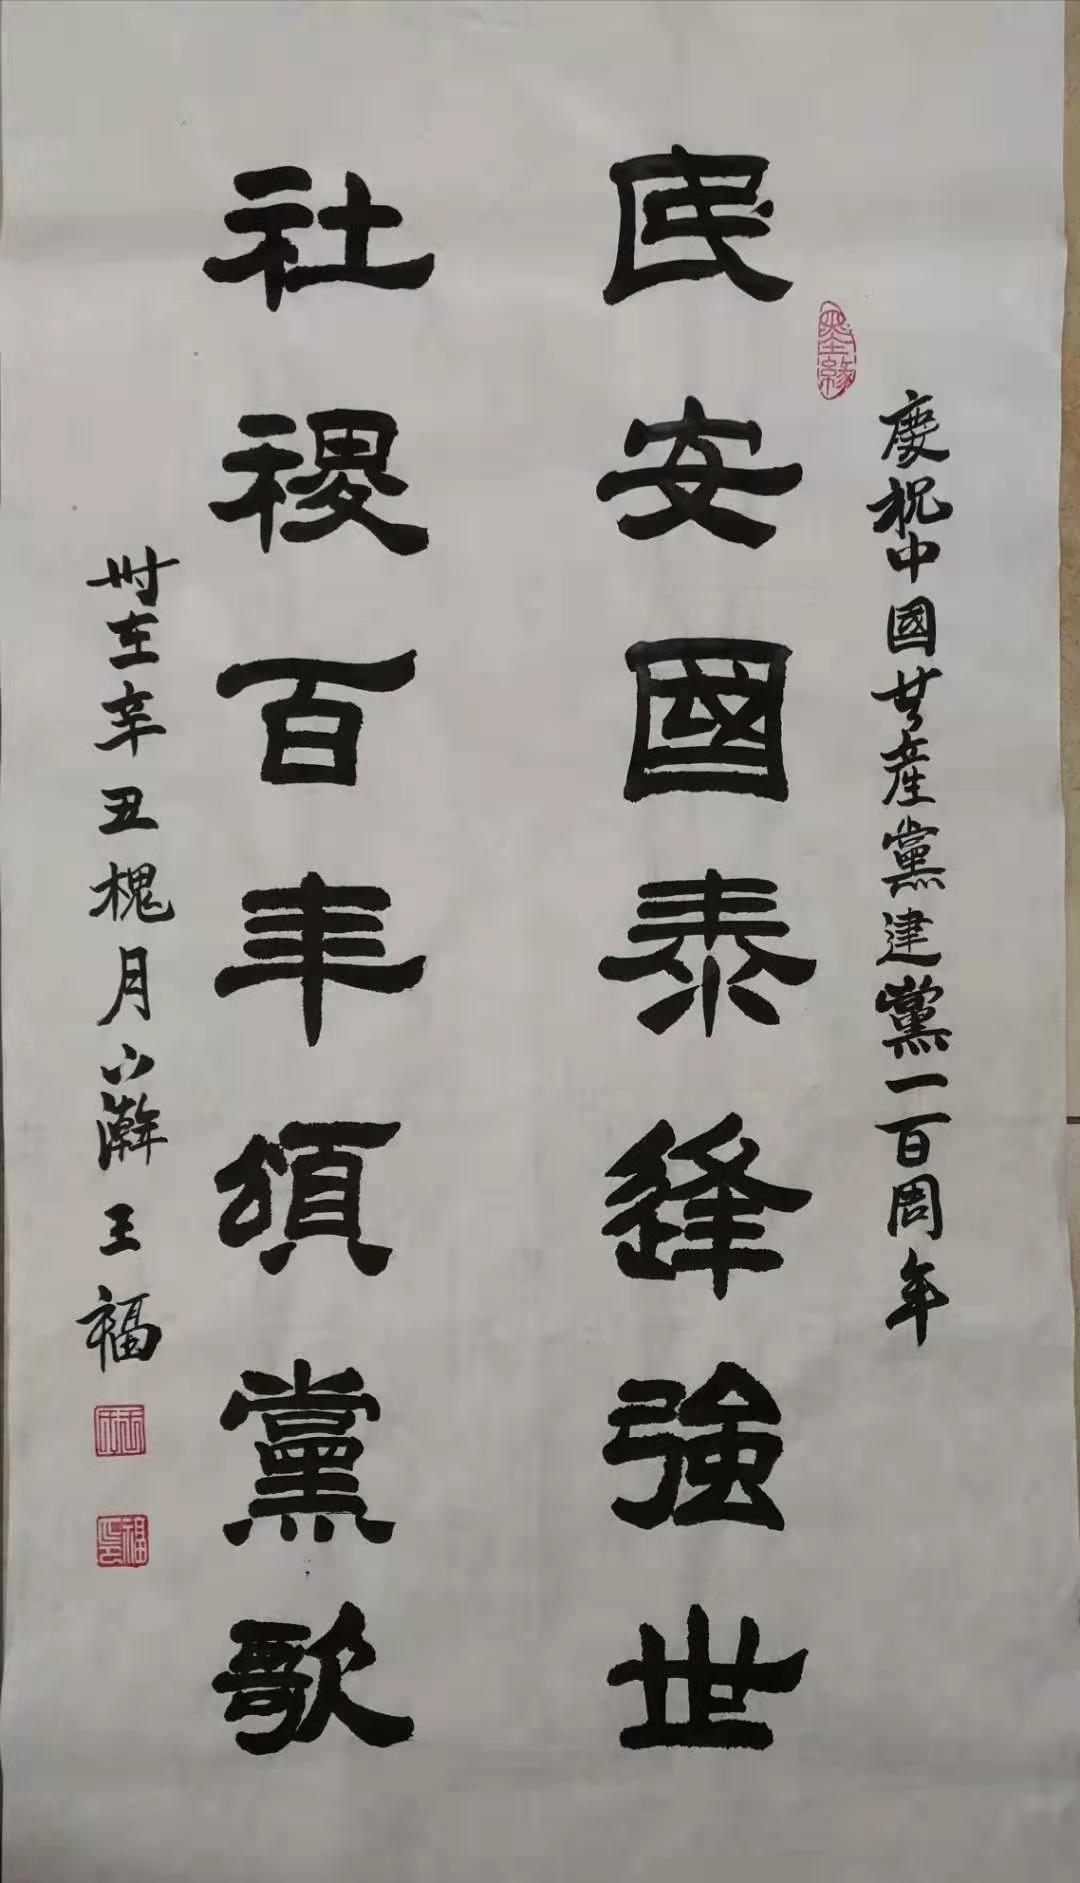 慶祝中國共產黨建黨一百周年
墨緣
民安國泰逢強世
社稷百年頌黨歌
時在辛丑槐月 瀚王福